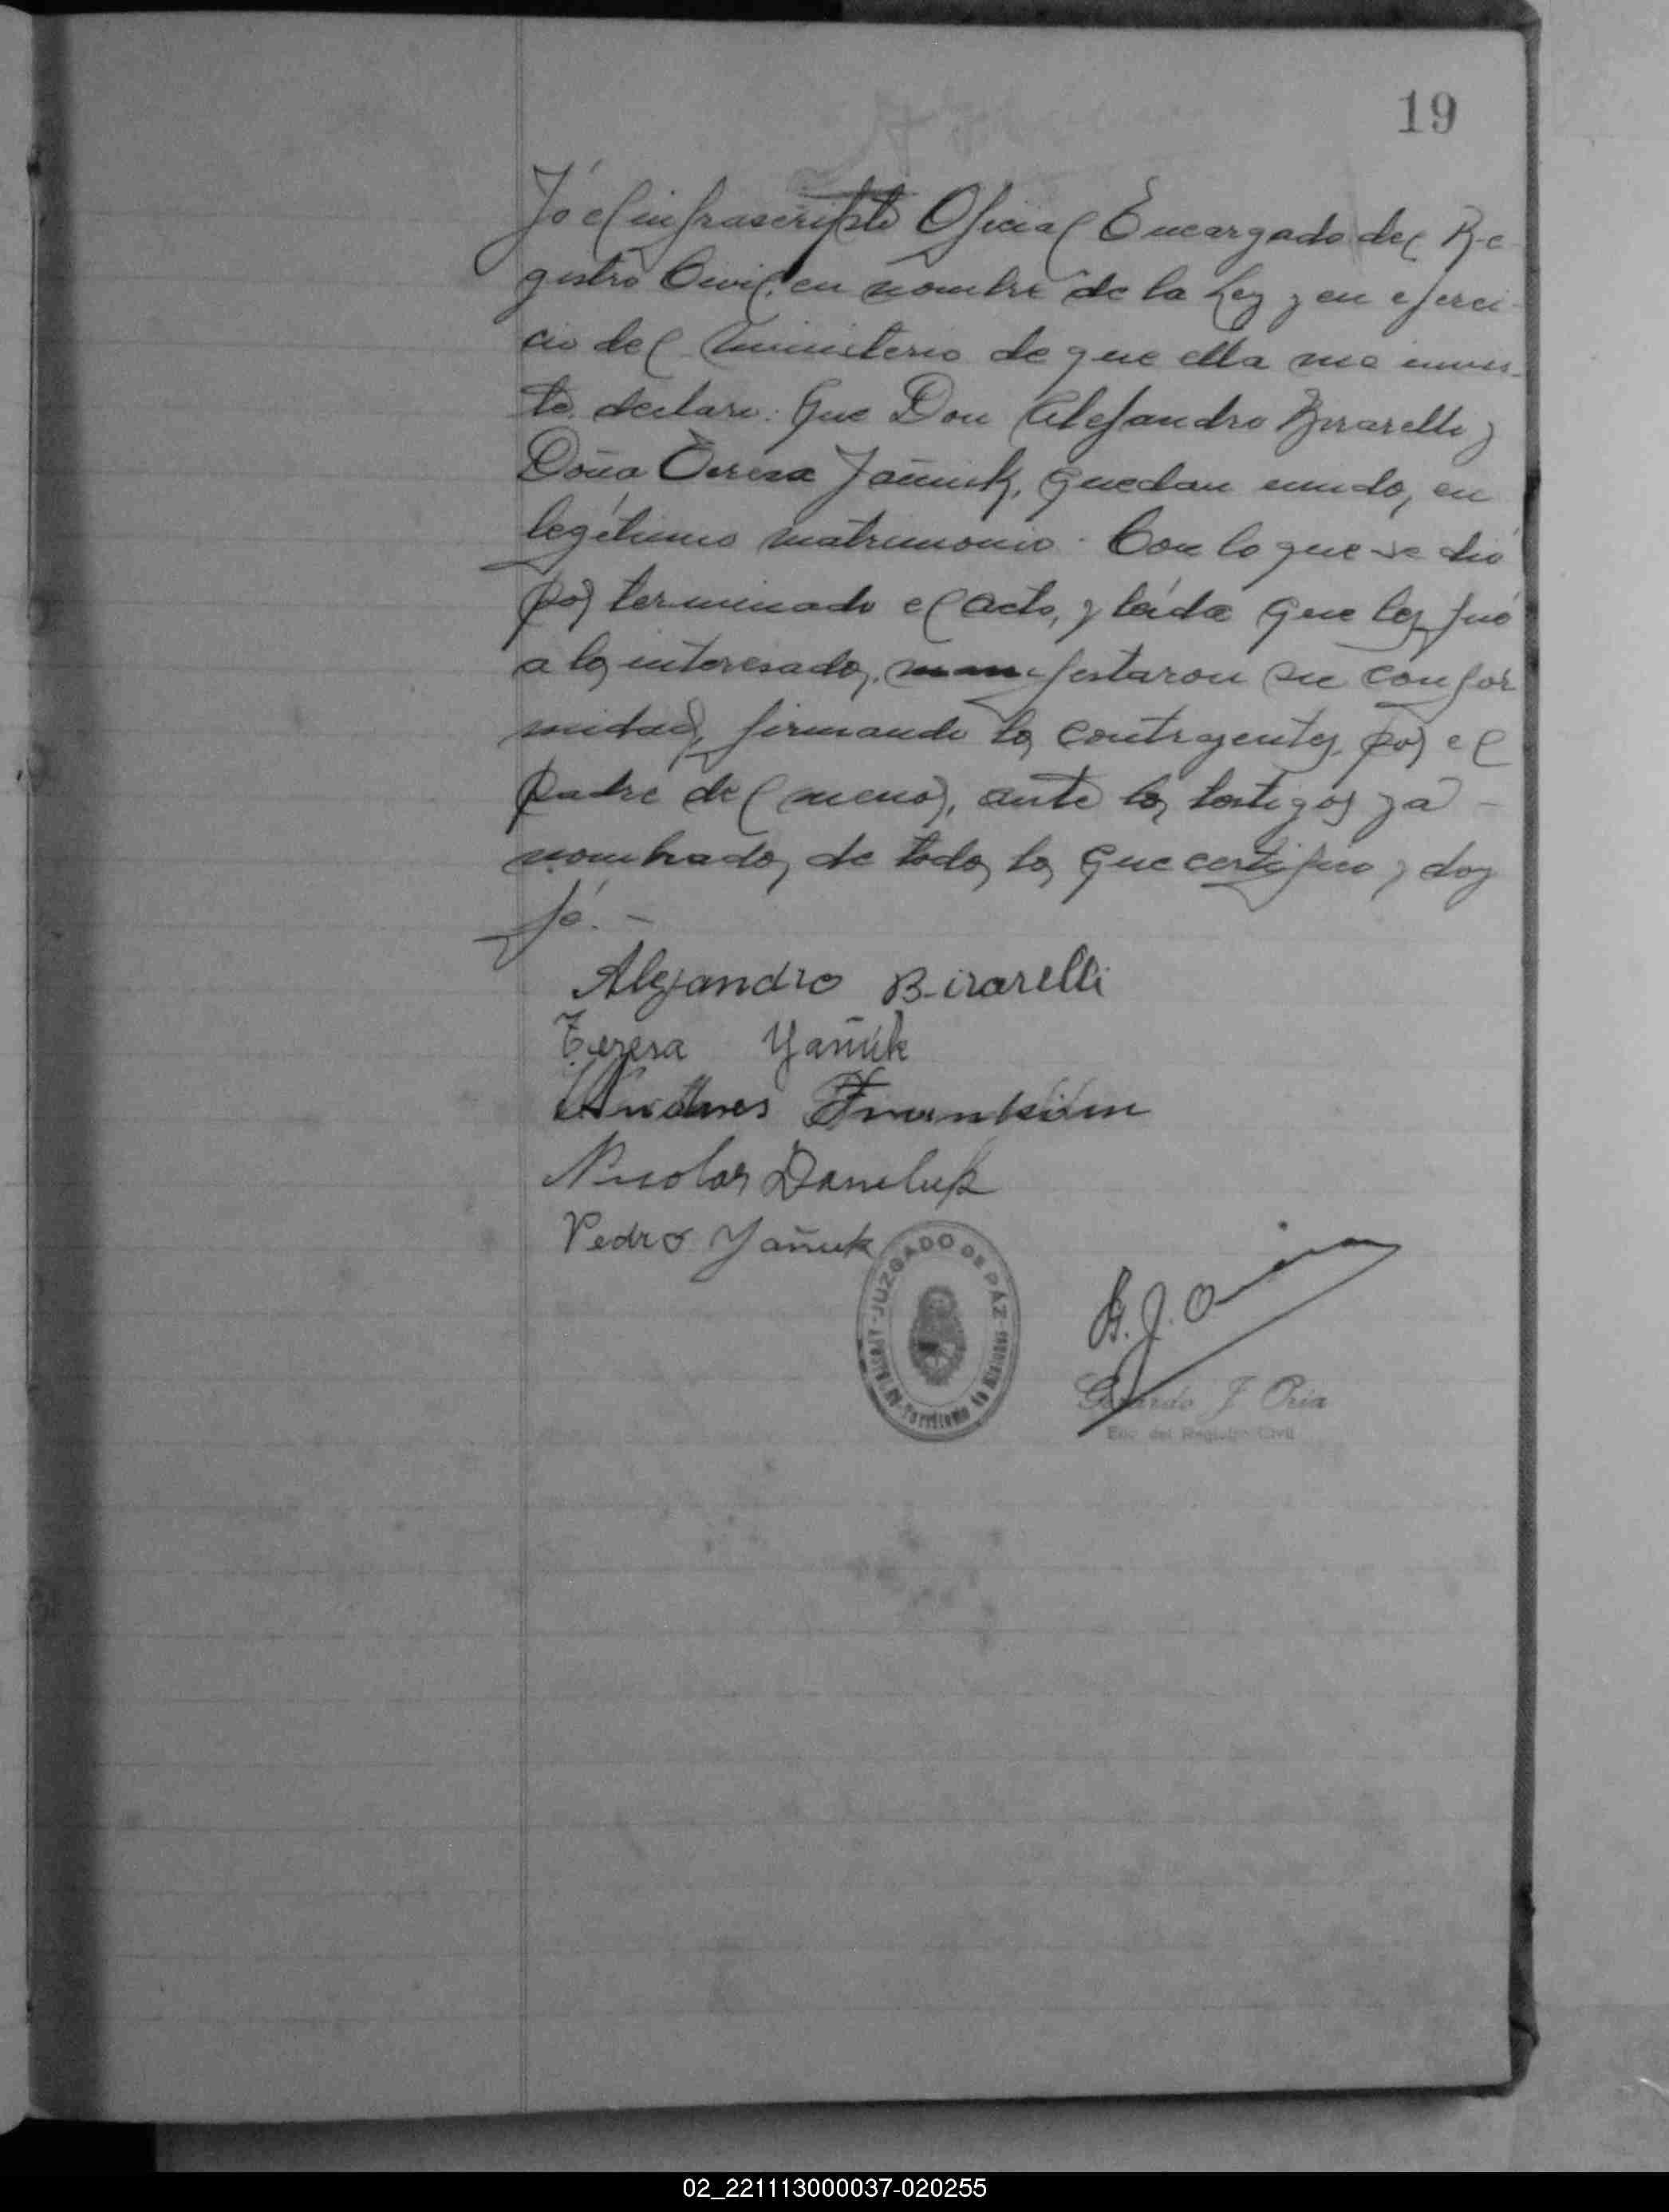 19
Yó el infrascripto Oficial Encargado del Re-
gistro Civil, en nombre de la Ley y en ejerci-
cio del Ministerio de que ella me invis-
te declaro: Que Don Alejandro Birarelli y
Doña Teresa Yañuk, quedan unidos en
legítimo matrimonio. Con lo que se dió
por terminado el acto, y leída que les fué
a los interesados, manifestaron su confor
midad, firmando los contrayentes, por el
padre del menor, ante los testigos ya -
nombrados, de todos los que certifico y doy
fé. -
Alejandro Birarelli
Teresa Yañúk
Nicolas Daneluk
Pedro Yañuk
JUZGADO DE PAZ
Territorio de Misiones
G. J. O
Gerardo J. Oria
Enc. del Registro Civil
02_221113000037-020255